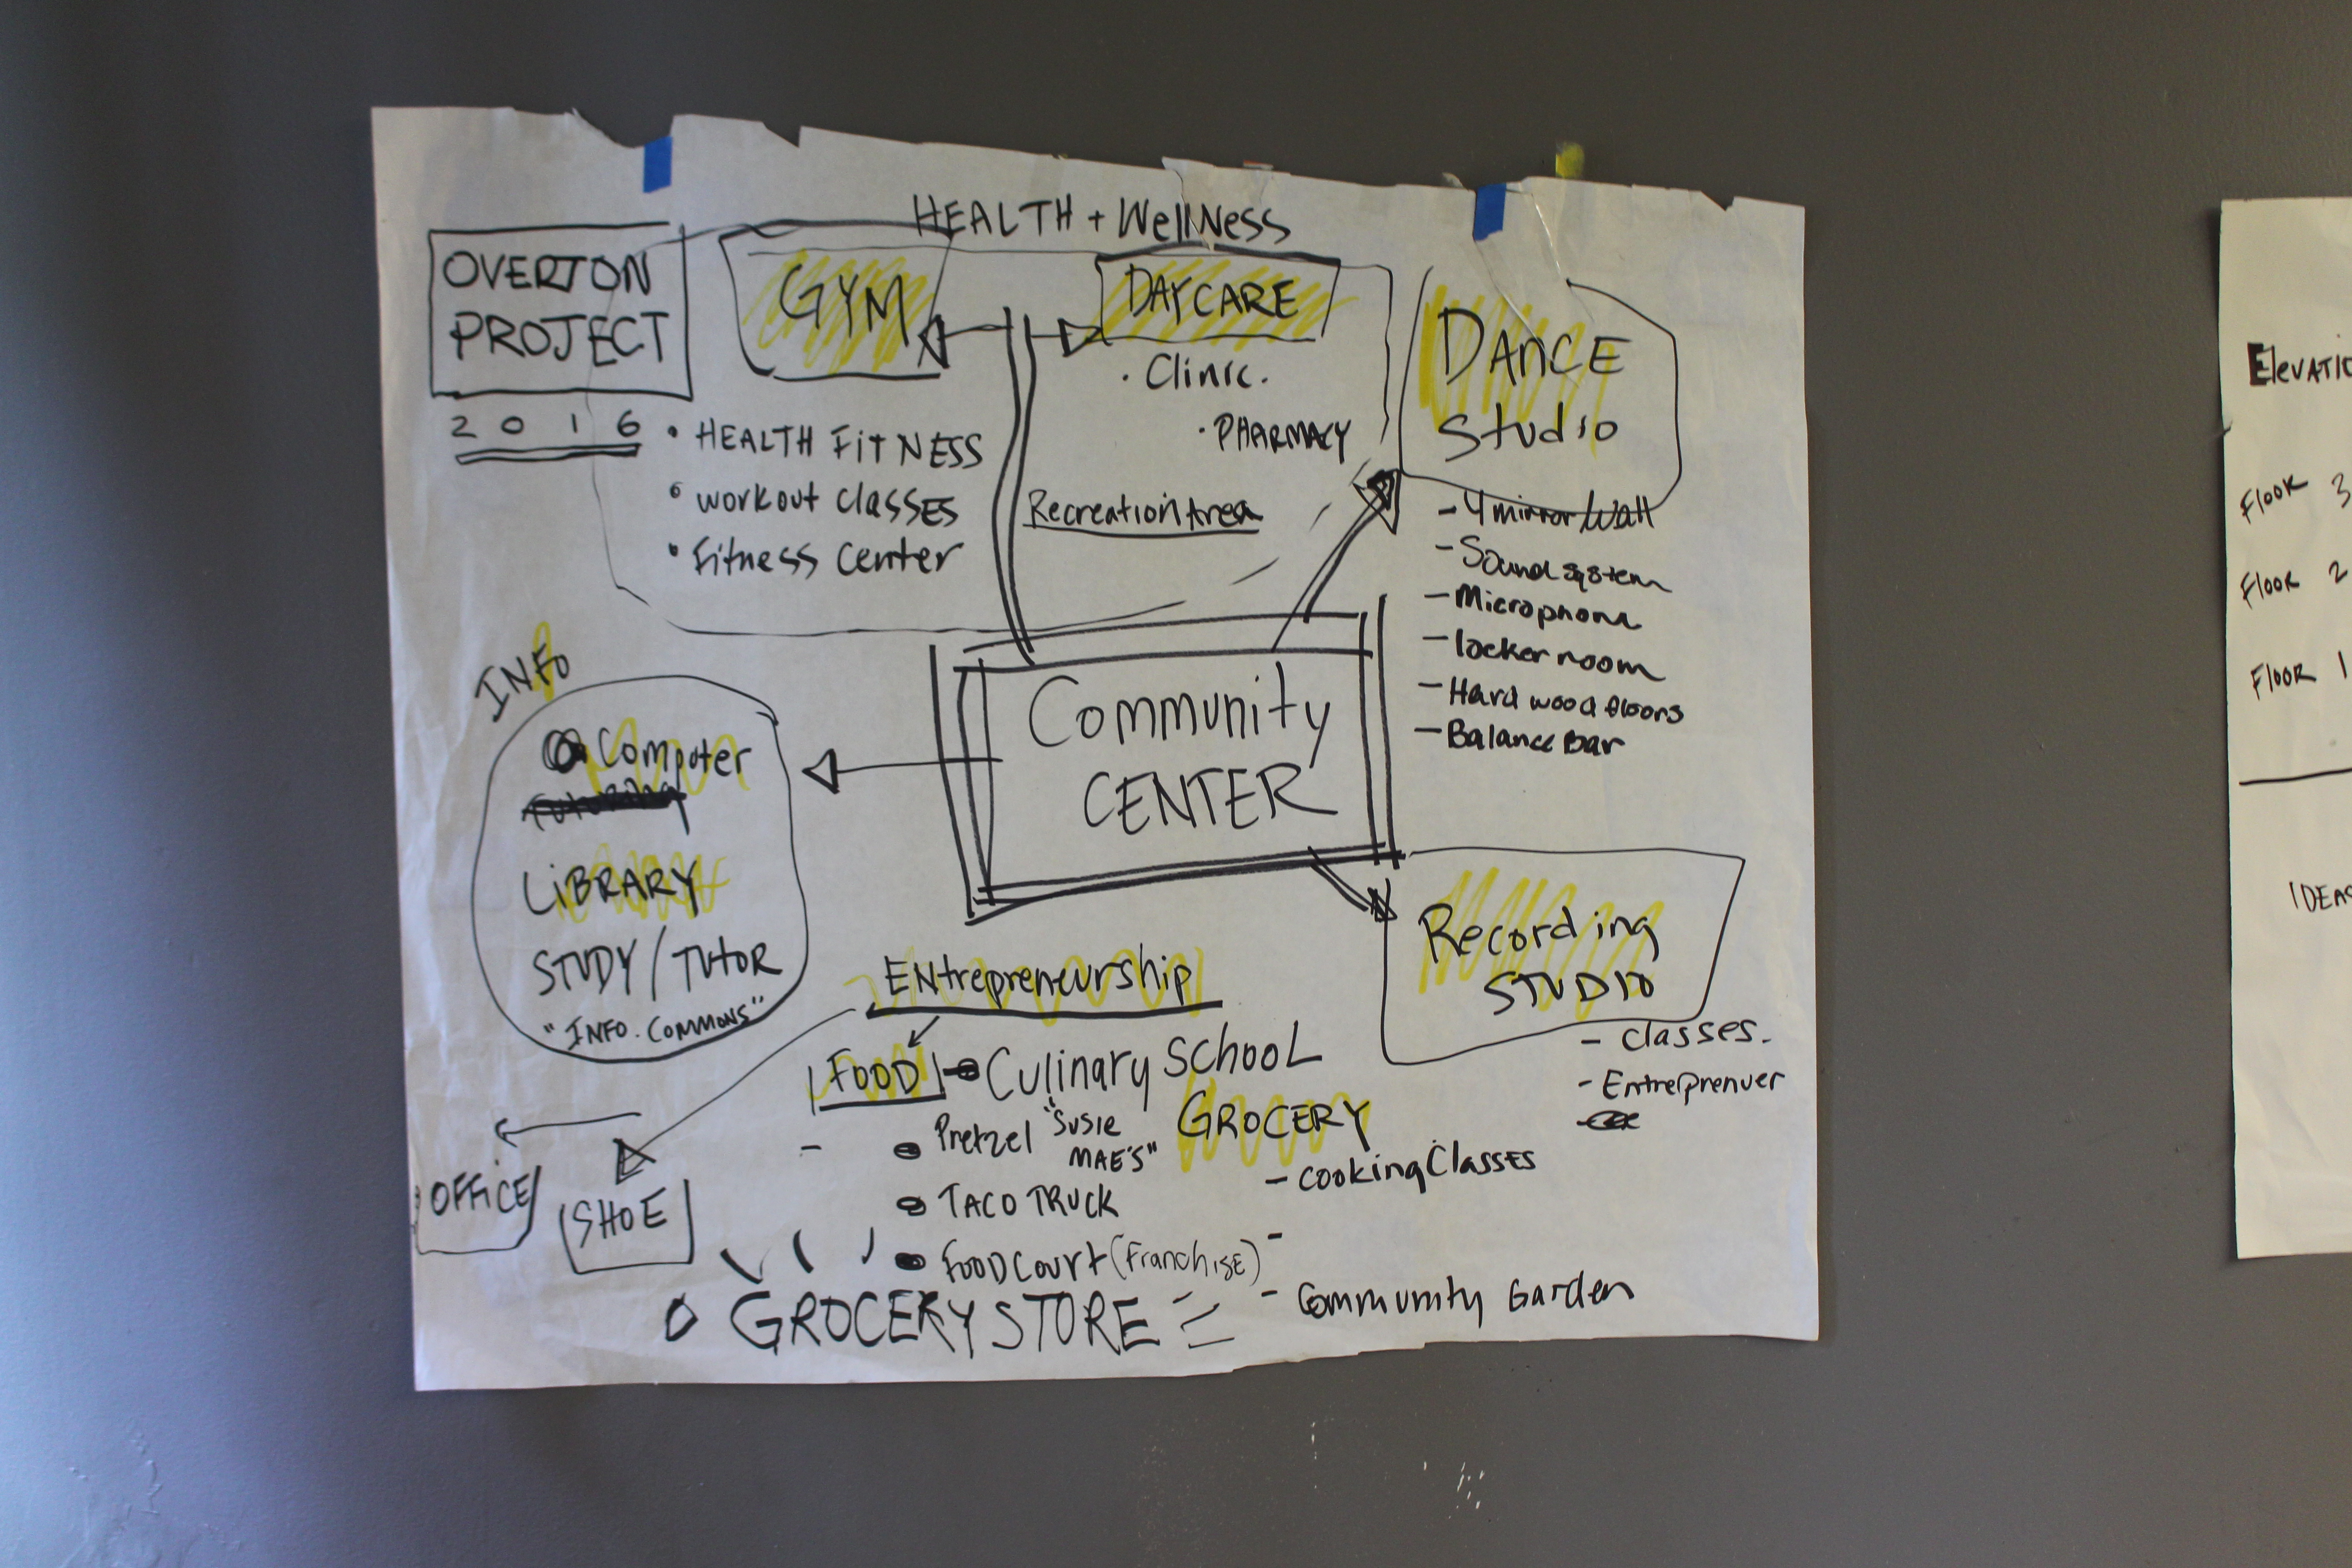 HEALTH + WellNess
OVERTON
PROJECT
2016
GYM
• HEALTH FITNESS
• workout classes
• Fitness center
DAYCARE
• Clinic.
• PHARMACY
Recreation Area
DANCE
Studio
- 4 mirror/wall
- Sound system
- Microphone
- locker room
- Hard wood floors
- Balance Bar
INFO
Computer
LiBRARY
STUDY/TUTOR
"INFO. COMMONS"
Community
CENTER
Recording
STUDIO
- classes.
- Entreprenuer
ENtrepreneurship
FOOD
Culinary SCHOOL
GROCERY
- cooking Classes
• Pretzel "SUSIE
MAE'S"
• TACO TRUCK
• FOOD COURT (Franchise)
OFFICE
SHOE
GROCERY STORE
- Community Garden
FLOOR 3
FLOOR 2
FLOOR 1